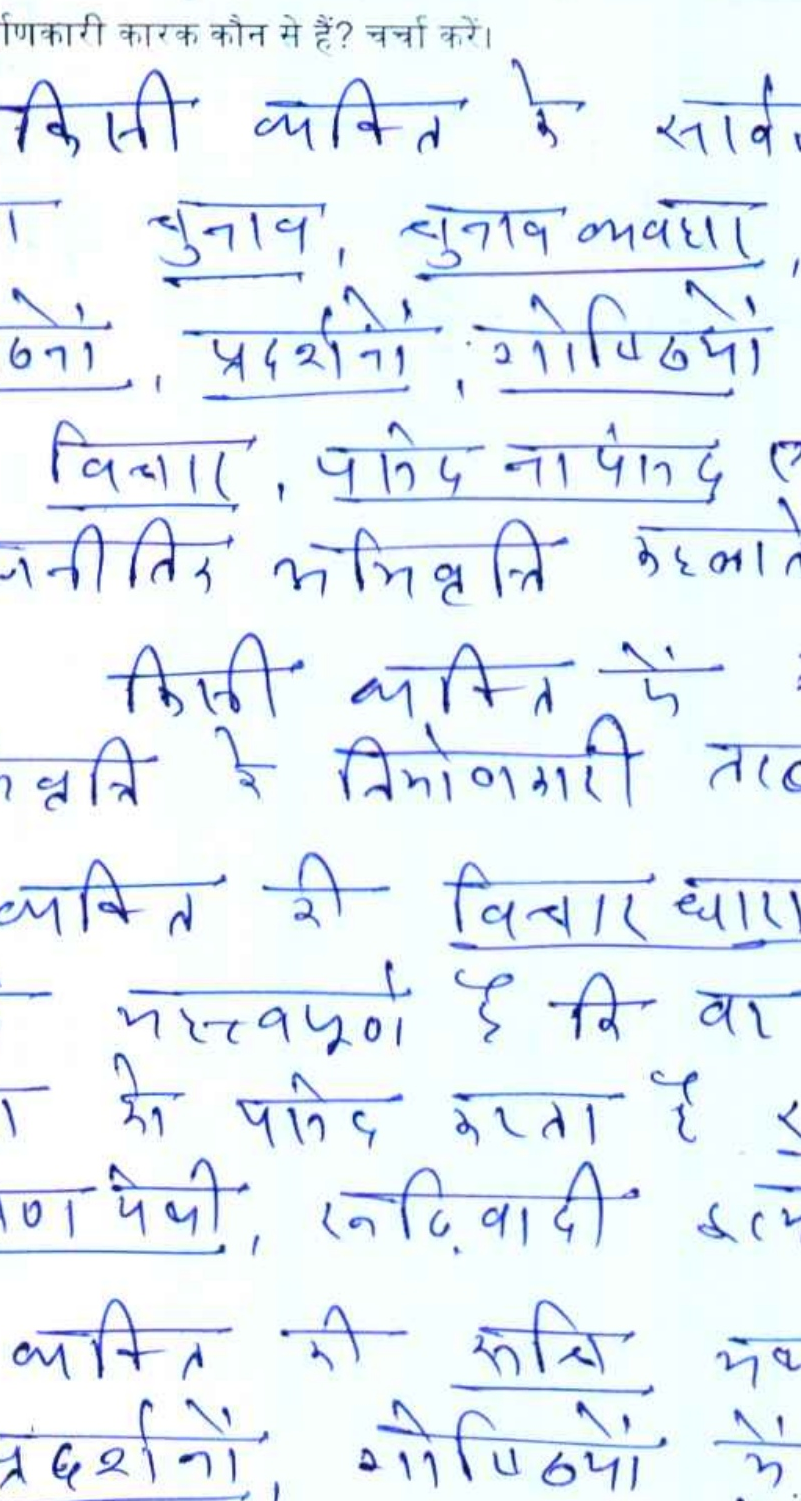 र्णकारी कारक कौन से हैं? चर्चा करें।
किसी व्यक्ति के सार्व
ा चुनाव, चुनाव व्यवस्था,
ठनों, प्रदर्शनों, गोष्ठियों
विचार, पसंद नापसंद ए
जनीतिक अभिवृत्ति कहलाते
किसी व्यक्ति में
वृत्ति के निर्माणकारी तत्व
व्यक्ति की विचार धारा
महत्त्वपूर्ण है कि वह
ा को पसंद करता है
पंथी, रूढ़िवादी इत्य
व्यक्ति की रूचि
प्रदर्शनों, गोष्ठियों में